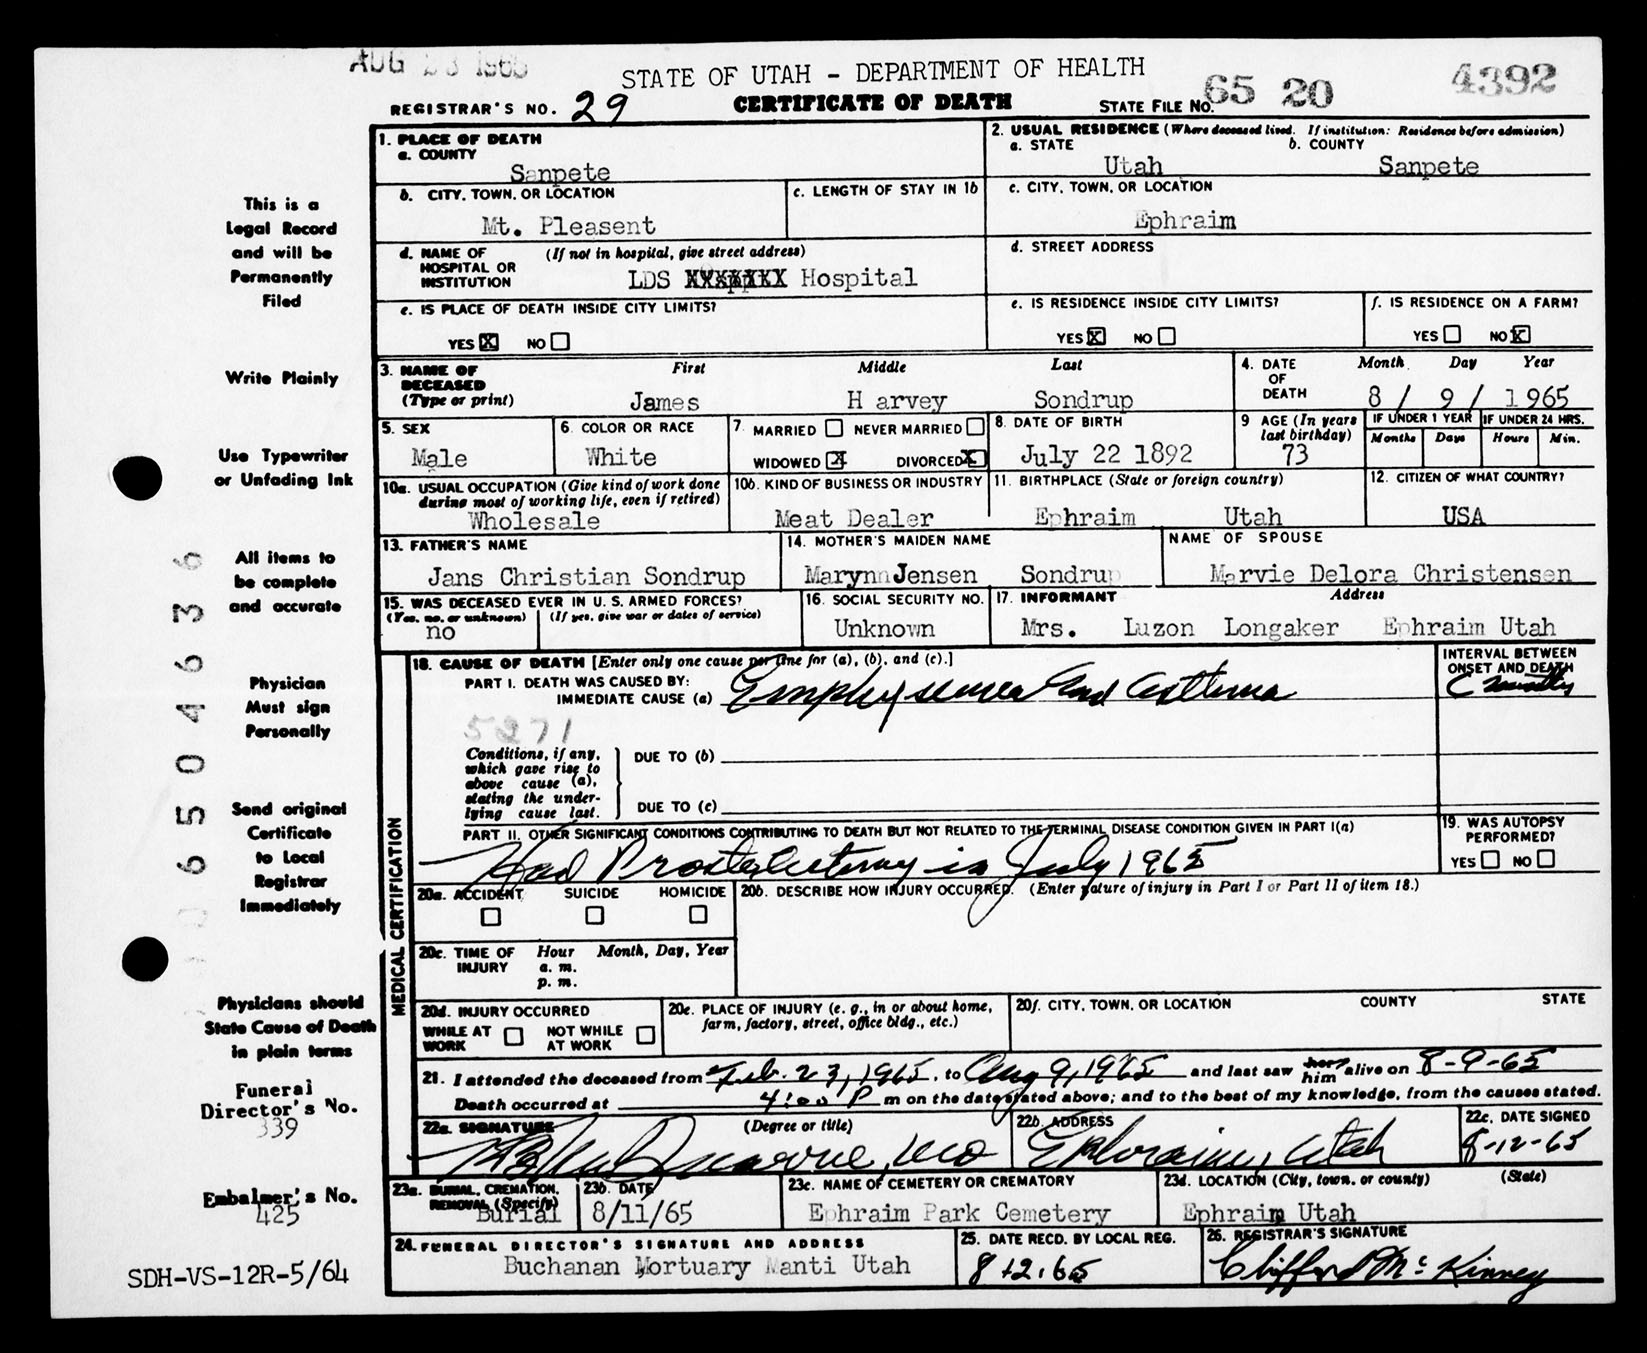 AUG 23 1965
STATE OF UTAH - DEPARTMENT OF HEALTH
REGISTRAR'S NO. 29
CERTIFICATE OF DEATH
STATE FILE NO. 65 20 4392
This is a
Legal Record
and will be
Permanently
Filed
Write Plainly
Use Typewriter
or Unfading Ink
All items to
be complete
and accurate
Physician
Must sign
Personally
Send original
Certificate
to Local
Registrar
Immediately
Physicians should
State Cause of Death
in plain terms
Funeral
Director's No.
339
Embalmer's No.
425
SDH-VS-12R-5/64
6504636
1. PLACE OF DEATH
a. COUNTY
Sanpete
2. USUAL RESIDENCE (Where deceased lived. If institution: Residence before admission)
a. STATE b. COUNTY
Utah Sanpete
b. CITY, TOWN, OR LOCATION
Mt. Pleasent
c. LENGTH OF STAY IN 1b
c. CITY, TOWN, OR LOCATION
Ephraim
d. NAME OF (If not in hospital, give street address)
HOSPITAL OR
INSTITUTION
LDS XXXXXXX Hospital
d. STREET ADDRESS
e. IS PLACE OF DEATH INSIDE CITY LIMITS?
YES X NO
e. IS RESIDENCE INSIDE CITY LIMITS?
YES X NO
f. IS RESIDENCE ON A FARM?
YES NO X
3. NAME OF DECEASED (Type or print)
First Middle Last
James H arvey Sondrup
4. DATE OF DEATH
Month Day Year
8 / 9 / 1965
5. SEX
Male
6. COLOR OR RACE
White
7. MARRIED NEVER MARRIED
WIDOWED X DIVORCED X
8. DATE OF BIRTH
July 22 1892
9 AGE (In years last birthday)
73
IF UNDER 1 YEAR IF UNDER 24 HRS.
Months Days Hours Min.
10a. USUAL OCCUPATION (Give kind of work done
during most of working life, even if retired)
Wholesale
10b. KIND OF BUSINESS OR INDUSTRY
Meat Dealer
11. BIRTHPLACE (State or foreign country)
Ephraim Utah
12. CITIZEN OF WHAT COUNTRY?
USA
13. FATHER'S NAME
Jans Christian Sondrup
14. MOTHER'S MAIDEN NAME
Marynn Jensen Sondrup
NAME OF SPOUSE
Marvie Delora Christensen
15. WAS DECEASED EVER IN U. S. ARMED FORCES?
(Yes, no, or unknown) (If yes, give war or dates of service)
no
16. SOCIAL SECURITY NO.
Unknown
17. INFORMANT Address
Mrs. Luzon Longaker Ephraim Utah
MEDICAL CERTIFICATION
18. CAUSE OF DEATH [Enter only one cause per line for (a), (b), and (c).]
INTERVAL BETWEEN
ONSET AND DEATH
PART I. DEATH WAS CAUSED BY:
IMMEDIATE CAUSE (a) Emphysemea and asthma
5271
Conditions, if any,
which gave rise to
above cause (a),
stating the under-
lying cause last.
DUE TO (b)
DUE TO (c)
PART II. OTHER SIGNIFICANT CONDITIONS CONTRIBUTING TO DEATH BUT NOT RELATED TO THE TERMINAL DISEASE CONDITION GIVEN IN PART I(a)
Had Prostatectomy in July 1965
19. WAS AUTOPSY
PERFORMED?
YES NO
20a. ACCIDENT SUICIDE HOMICIDE
20b. DESCRIBE HOW INJURY OCCURRED. (Enter nature of injury in Part I or Part II of item 18.)
20c. TIME OF INJURY
Hour Month, Day, Year
a. m.
p. m.
20d. INJURY OCCURRED
WHILE AT WORK NOT WHILE AT WORK
20e. PLACE OF INJURY (e. g., in or about home,
farm, factory, street, office bldg., etc.)
20f. CITY, TOWN, OR LOCATION COUNTY STATE
21. I attended the deceased from Feb. 23, 1965, to Aug 9, 1965 and last saw her him alive on 8-9-65
Death occurred at 4:00 P m on the date stated above; and to the best of my knowledge, from the causes stated.
22a. SIGNATURE (Degree or title)
MD
22b. ADDRESS
Ephraim, Utah
22c. DATE SIGNED
8-12-65
23a. BURIAL, CREMATION,
REMOVAL (Specify)
Burial
23b. DATE
8/11/65
23c. NAME OF CEMETERY OR CREMATORY
Ephraim Park Cemetery
23d. LOCATION (City, town, or county) (State)
Ephraim Utah
24. FUNERAL DIRECTOR'S SIGNATURE AND ADDRESS
Buchanan Mortuary Manti Utah
25. DATE RECD. BY LOCAL REG.
8-12-65
26. REGISTRAR'S SIGNATURE
Clifford Mc Kinney